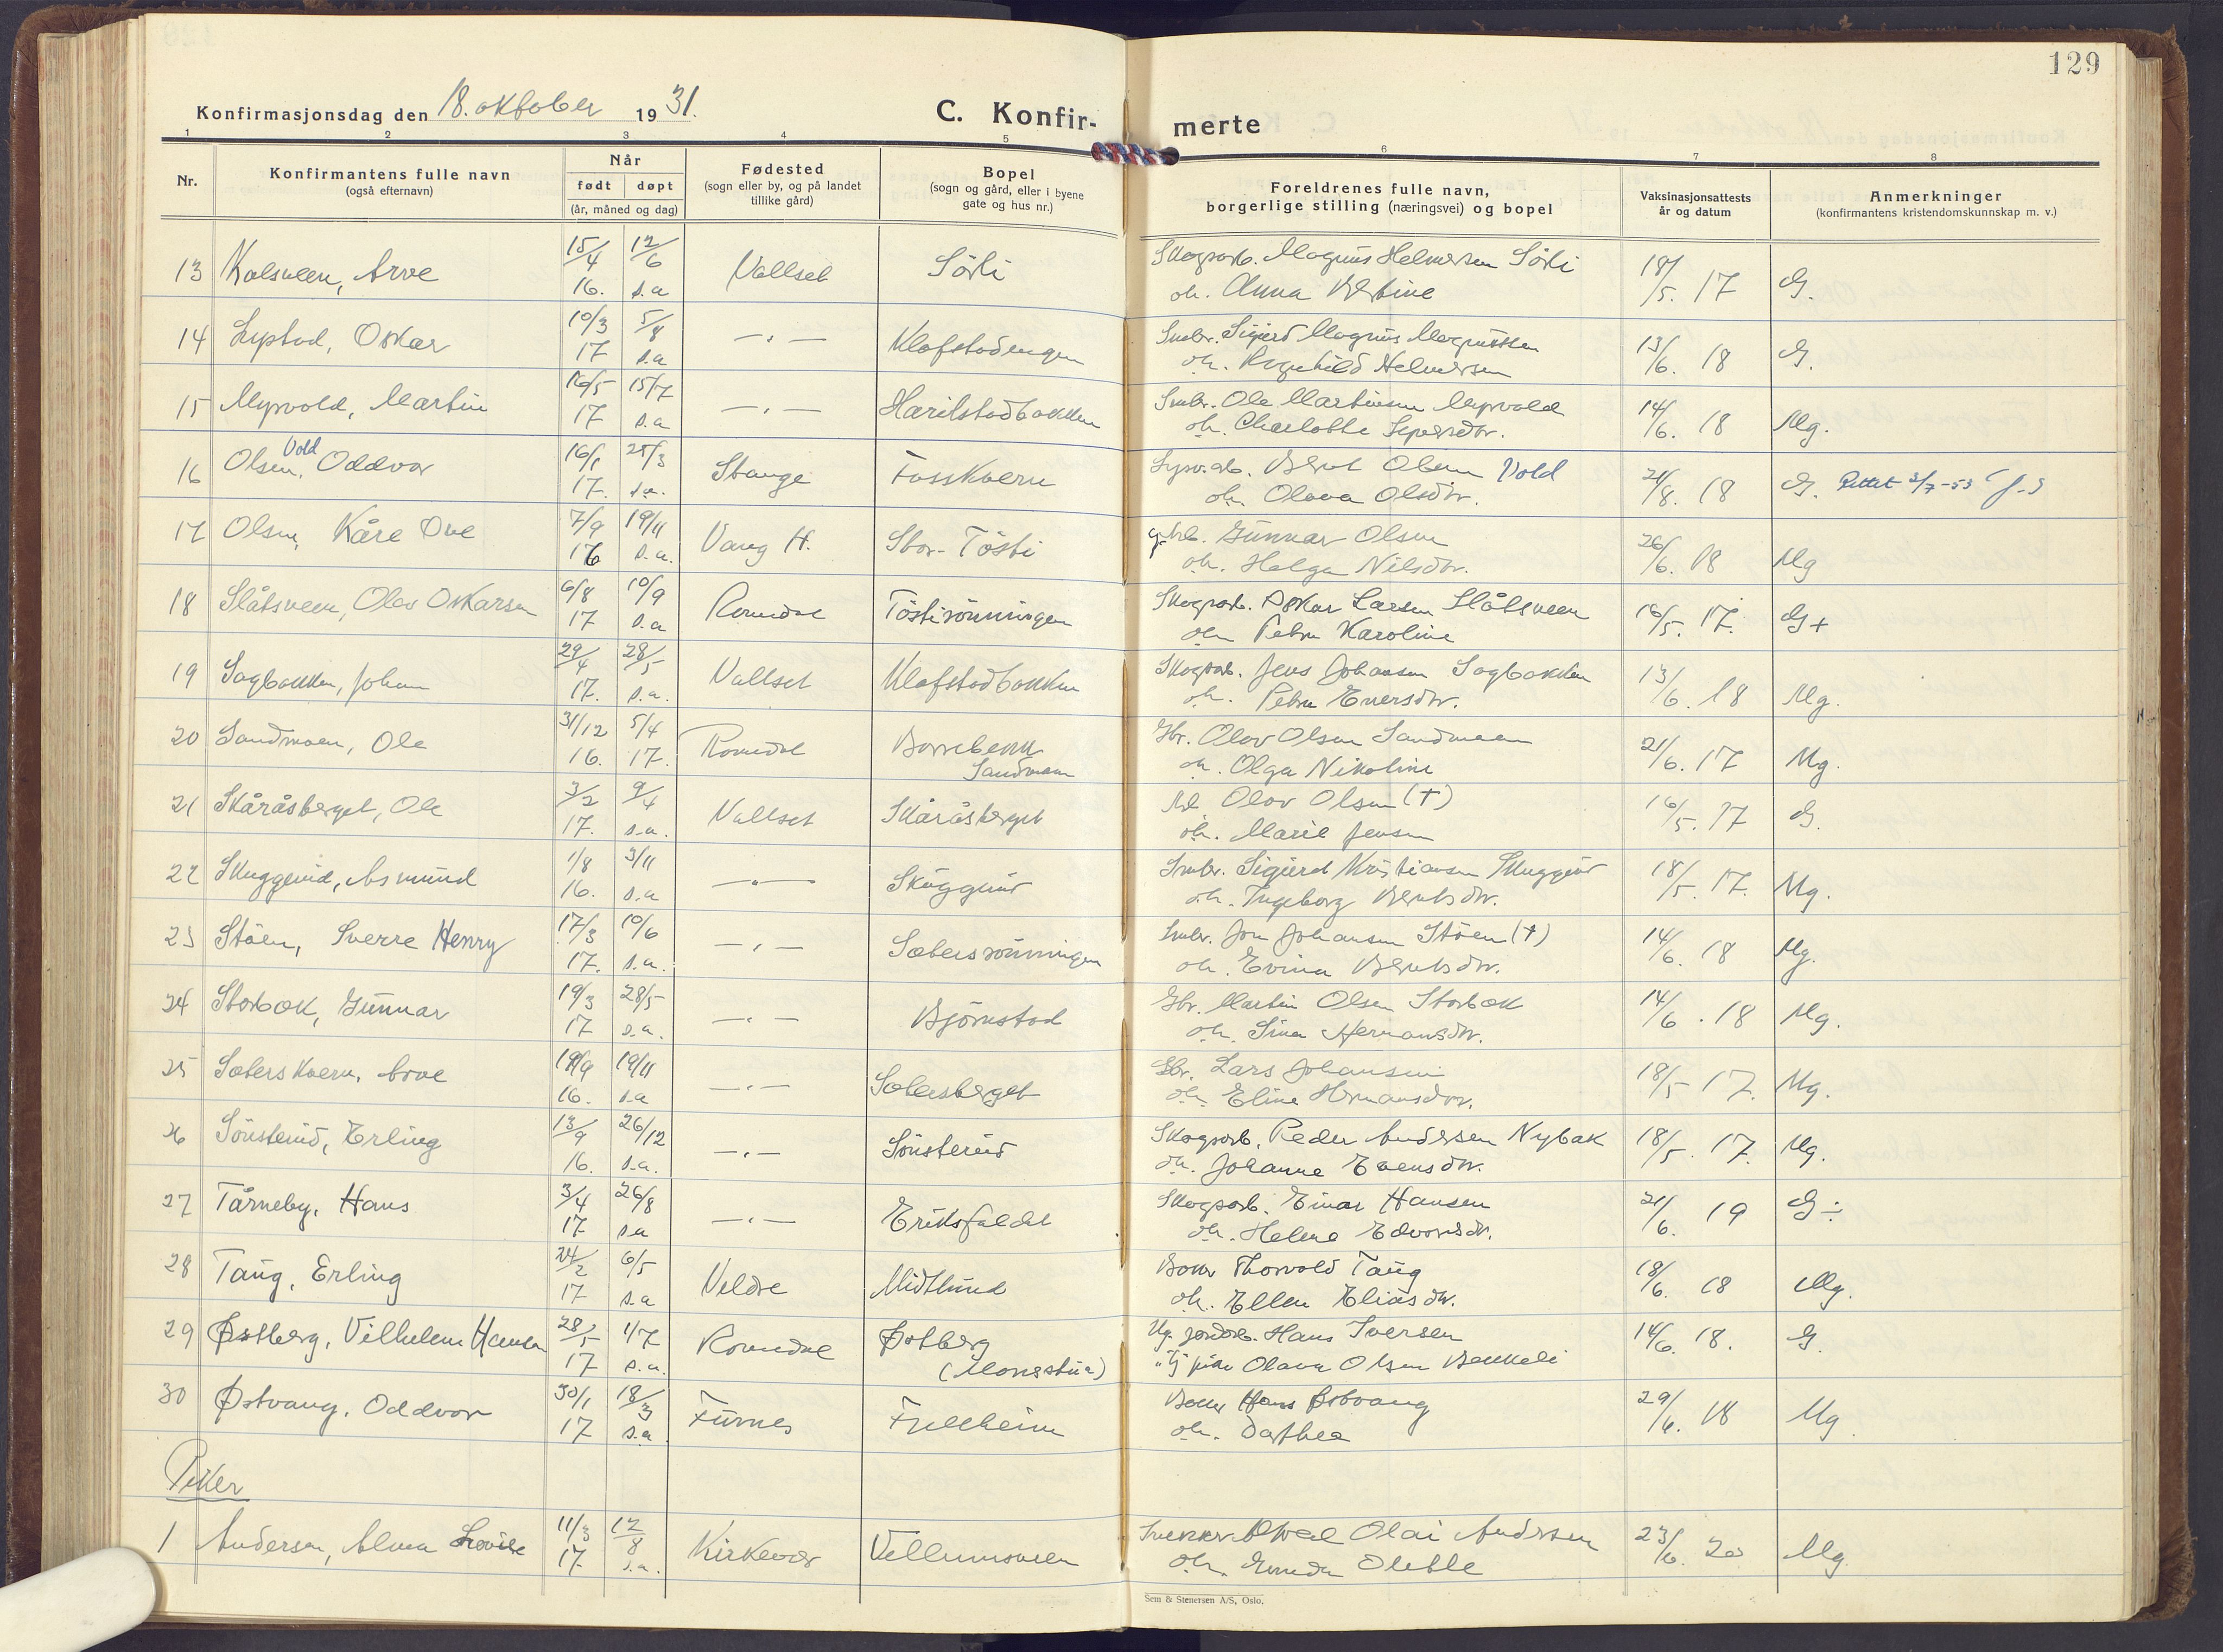 129
Konfirmasjonsdag den 18. oktober 1931.
C. Konfir-
merte
1 2 3 4 5 6 7 8
Nr.
Konfirmantens fulle navn
(også efternavn)
Når
født døpt
(år, måned og dag)
Fødested
(sogn eller by, og på landet
tillike gård)
Bopel
(sogn og gård, eller i byene
gate og hus nr.)
Foreldrenes fulle navn,
borgerlige stilling (næringsvei) og bopel
Vaksinasjonsattests
år og datum
Anmerkninger
(konfirmantens kristendomskunnskap m. v.)
13 Kolsveen, Arve 15/4 16. 12/6 s.a Vallset Sörli Skogsarb. Magnus Helmersen Sörli 18/5. 17 G.
oh. Anna
14 Lystad, Oskar 10/3 17 5/8 s.a — " — Klofstadengen Smbr. Sigurd Magnus Magnussen 13/6. 18 G.
oh. Ragnhild Helmersen
15 Myrvold, Martin 16/5 17 15/7 s.a — " — Harilstadbakken Smbr. Ole Martinsen Myrvold 14/6. 18 Mg.
oh. Charlotte
16 Olsen, Vold Oddvar 16/1 17. 25/3 s.a. Stange Fosskvern Bernt Olsen Vold 21/8. 18 G. Rettet 2/7-53
oh. Olava Olsdtr.
17 Olsen, Kåre Ove 7/9 16 19/11 s.a. Vang H. Stor-Tösti Gunnar Olsen 26/6. 18 Mg
oh. Helga Nilsdtr.
18 Slåtsveen, Olav Oskarsen 6/8 17 10/9 s.a Romedal Töstirönningen Skogsarb. Oskar Larsen Slåtsveen 16/5. 17. G+
oh. Petra Karoline
19 Sagbakken, Johan 29/4 17. 28/5 s.a. Vallset Klofstadbakken Skogsarb. Jens Johansen Sagbakken 13/6. 18 Mg.
oh. Petra Enersdtr.
20 Sandmoen, Ole 31/12 16. 5/4 17. Romedal Sandmoen Gbr. Olav Olsen Sandmoen 21/6. 17 Mg.
oh. Olga Nikoline
21 Skåråsberget, Ole 3/2 17. 9/4 s.a. Vallset Skåråsberget Olav Olsen (†) 16/5. 17 G.
oh. Marie Jensen
22 Skuggerud, Asmund 1/8 16. 3/11 s.a — " — Skuggerud Smbr. Sigurd Kristiansen Skuggerud 18/5. 17. Mg.
oh. Ingeborg Berntsdtr.
23 Stöen, Sverre Henry 17/3 17. 10/6 s.a. — " — Sætersrönningen Smbr. Jon Johansen Stöen (†) 14/6. 18 Mg.
oh. Evina Berntsdtr.
24 Storbæk, Gunnar 19/3 17 28/5 s.a. — " — Björnstad Gbr. Martin Olsen Storbæk 14/6. 18 Mg.
oh. Sina Hermansdtr.
25 Sæterskvern, Arve 19/9 16. 19/11 s.a — " — Sætersberget Gbr. Lars Johansen 18/5 17. Mg.
oh. Eline Hermansdtr.
26 Sönsterud, Erling 13/9 16. 26/12 s.a. — " — Sönsterud Skogsarb. Peder Andersen Nybak 18/5. 17. Mg.
oh. Johanne Evensdtr.
27 Tårneby, Hans 3/4 17 26/8 s.a — " — Eriksfaldet Skogsarb. Einar Hansen 21/6. 19 G ÷
oh. Helene Edvardsdtr.
28 Taug, Erling 24/2 17 6/5 s.a Veldre Midtlund Thorvald Taug 18/6. 18 Mg.
oh. Ellen Eliasdtr.
29 Østberg, Vilhelm Hansen 28/5 17 1/7 s.a. Romedal Østberg Ug. jordarb. Hans Iversen 14/6. 18. G.
(Monsstua) pike Olava Olsen Bekkeli
30 Østvang, Oddvar 30/1 17 18/3 s.a. Furnes Hans Østvang 29/6. 18 Mg.
oh. Dorthea
Piker
1 Andersen, Alma Lovise 11/3 17. 12/8 s.a. Kirkevær Vellumsveen Olai Andersen 23/6. 20 Mg.
oh.
Sem & Stenersen A/S, Oslo.